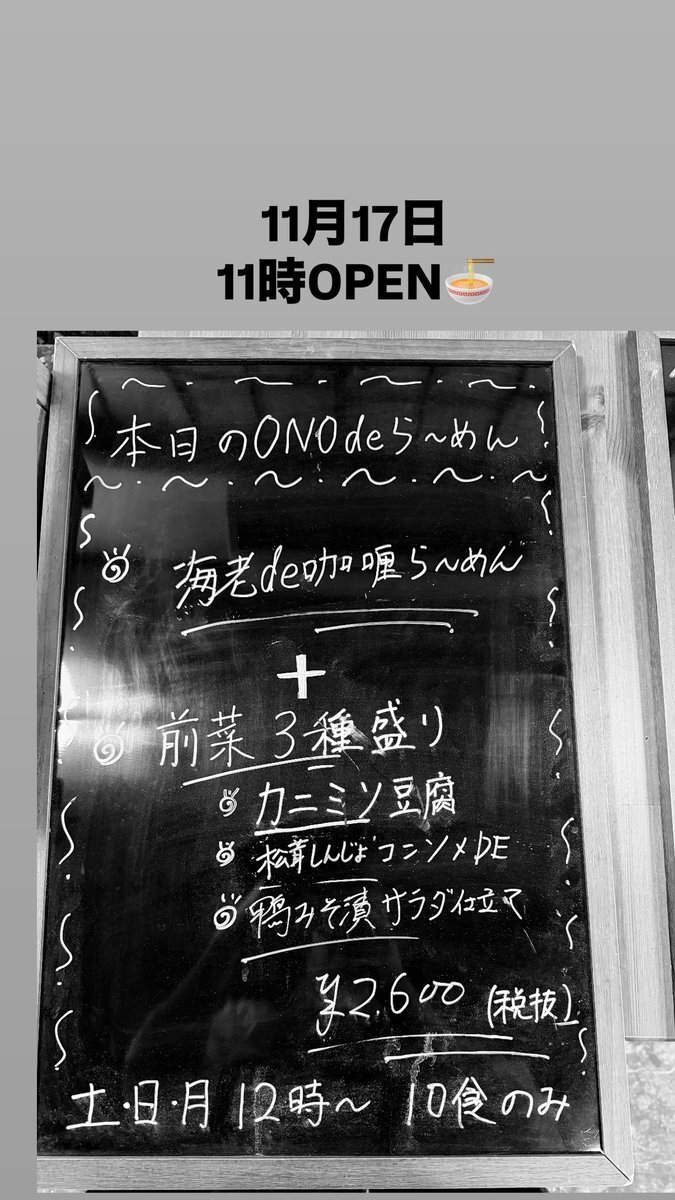 11月17日
11時OPEN🍜
本日のONOdeら〜めん
海老de咖喱ら〜めん
+
前菜3種盛り
カニミソ豆腐
松茸しんじょコンソメDE
鴨みそ漬サラダ仕立て
¥2.600 (税抜)
土・日・月 12時〜 10食のみ